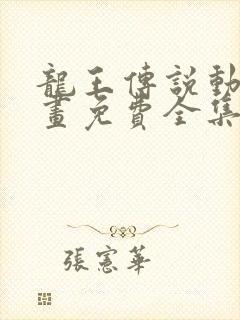 龍王傳說動
畫免費全集
張憲華